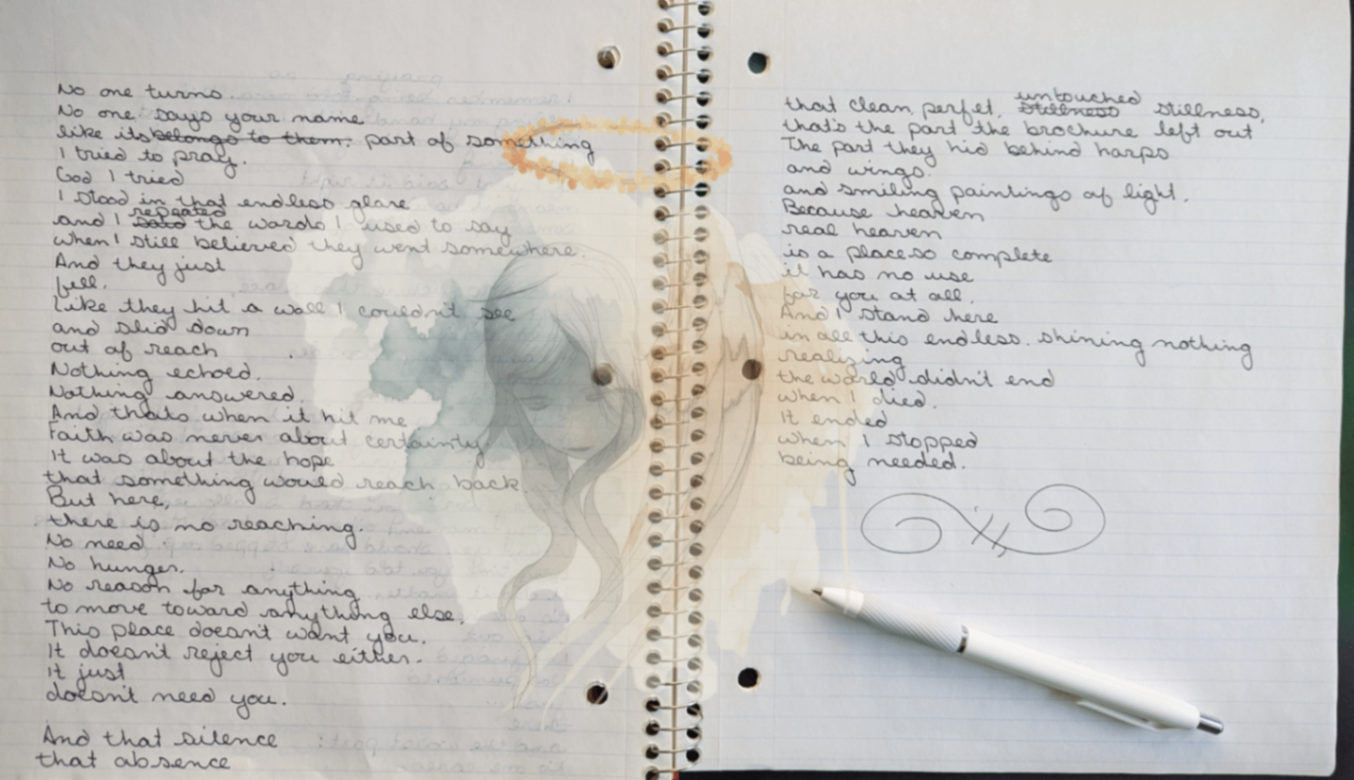 No one turns.
No one says your name
like its belongs to them. part of something
I tried to pray.
God I tried
I stood in that endless glare
repeated
and I said the words I used to say
when I still believed they went somewhere.
And they just
fell.
Like they hit a wall I couldn't see
and slid down
out of reach
Nothing echoed.
Nothing answered.
And thats when it hit me
Faith was never about certainty
It was about the hope
that something would reach back.
But here,
there is no reaching.
No need
No hunger.
No reason for anything
to move toward anything else.
This place doesn't want you.
It doesn't reject you either.
It just
doesn't need you.
And that silence
that absence
untouched
that clean, perfet, stillness stillness,
that's the part the brochure left out
The part they hid behind harps
and wings.
and smiling paintings of light.
Because heaven
real heaven
is a place so complete
it has no use
for you at all.
And I stand here
in all this endless. shining nothing
realizing
the world didn't end
when I died.
It ended
when I stopped
being needed.